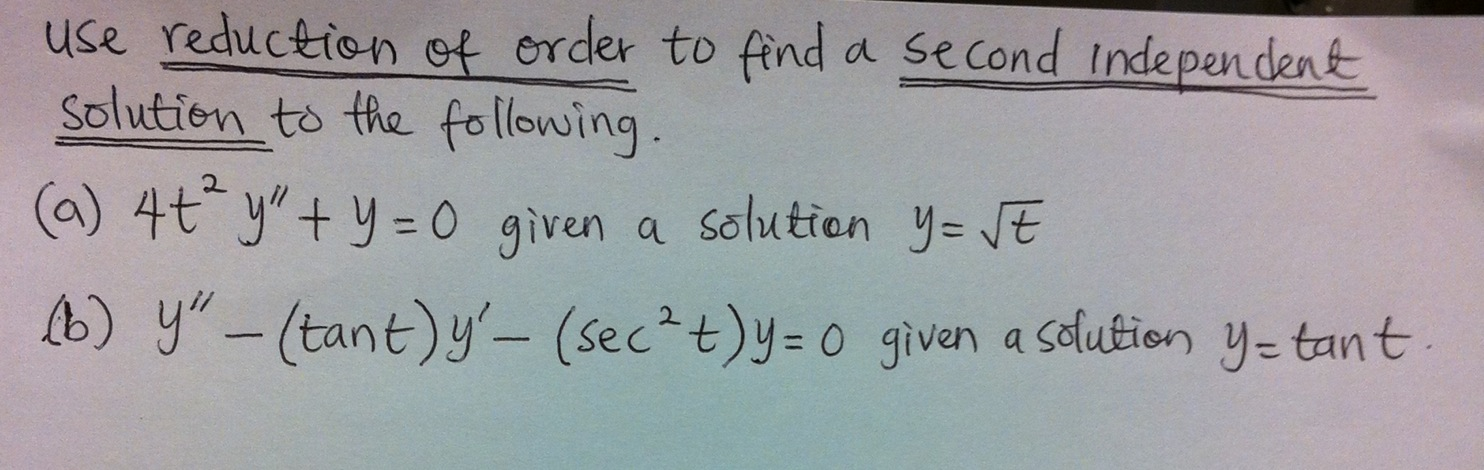 use reduction of order to find a second independent
solution to the following.
(a) 4t² y″ + y = 0 given a solution y = √t
(b) y″ − (tan t) y′ − (sec² t) y = 0 given a solution y = tan t.